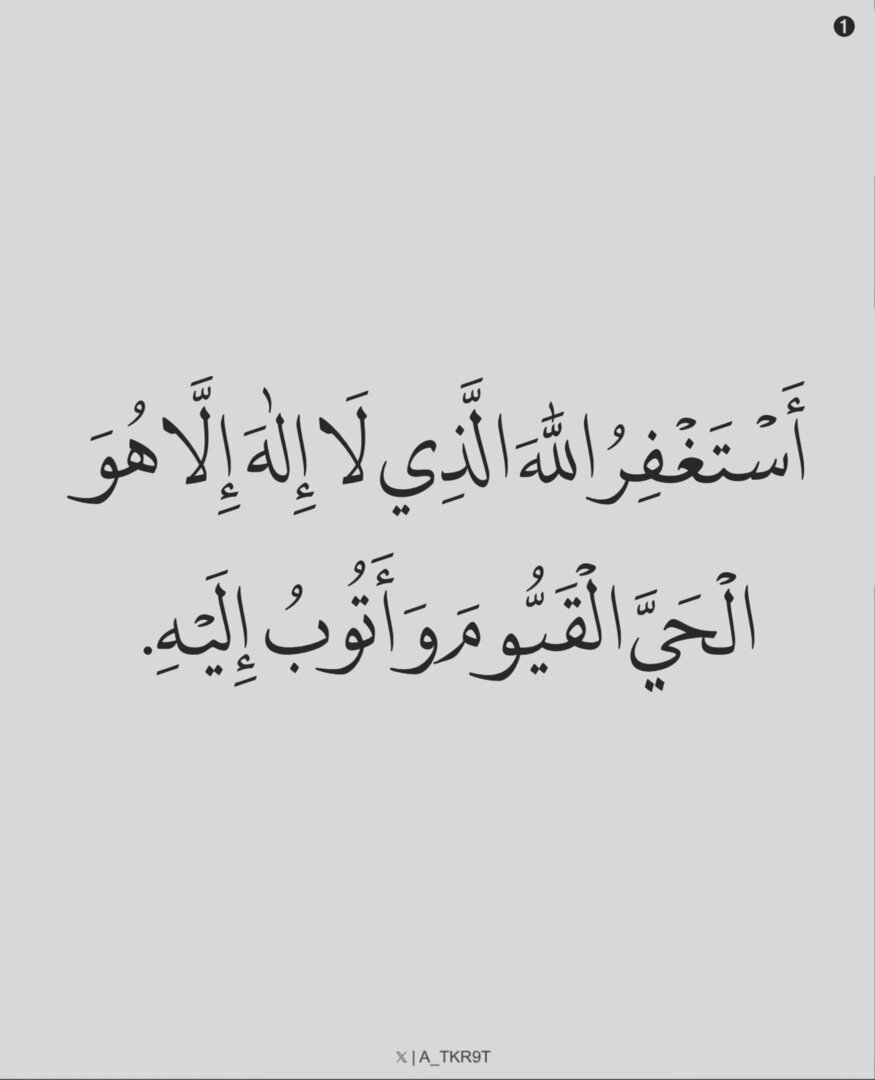 ❶
أَسْتَغْفِرُ اللَّهَ الَّذِي لَا إِلٰهَ إِلَّا هُوَ
الْحَيَّ الْقَيُّومَ وَأَتُوبُ إِلَيْهِ.
𝕏 | A_TKR9T